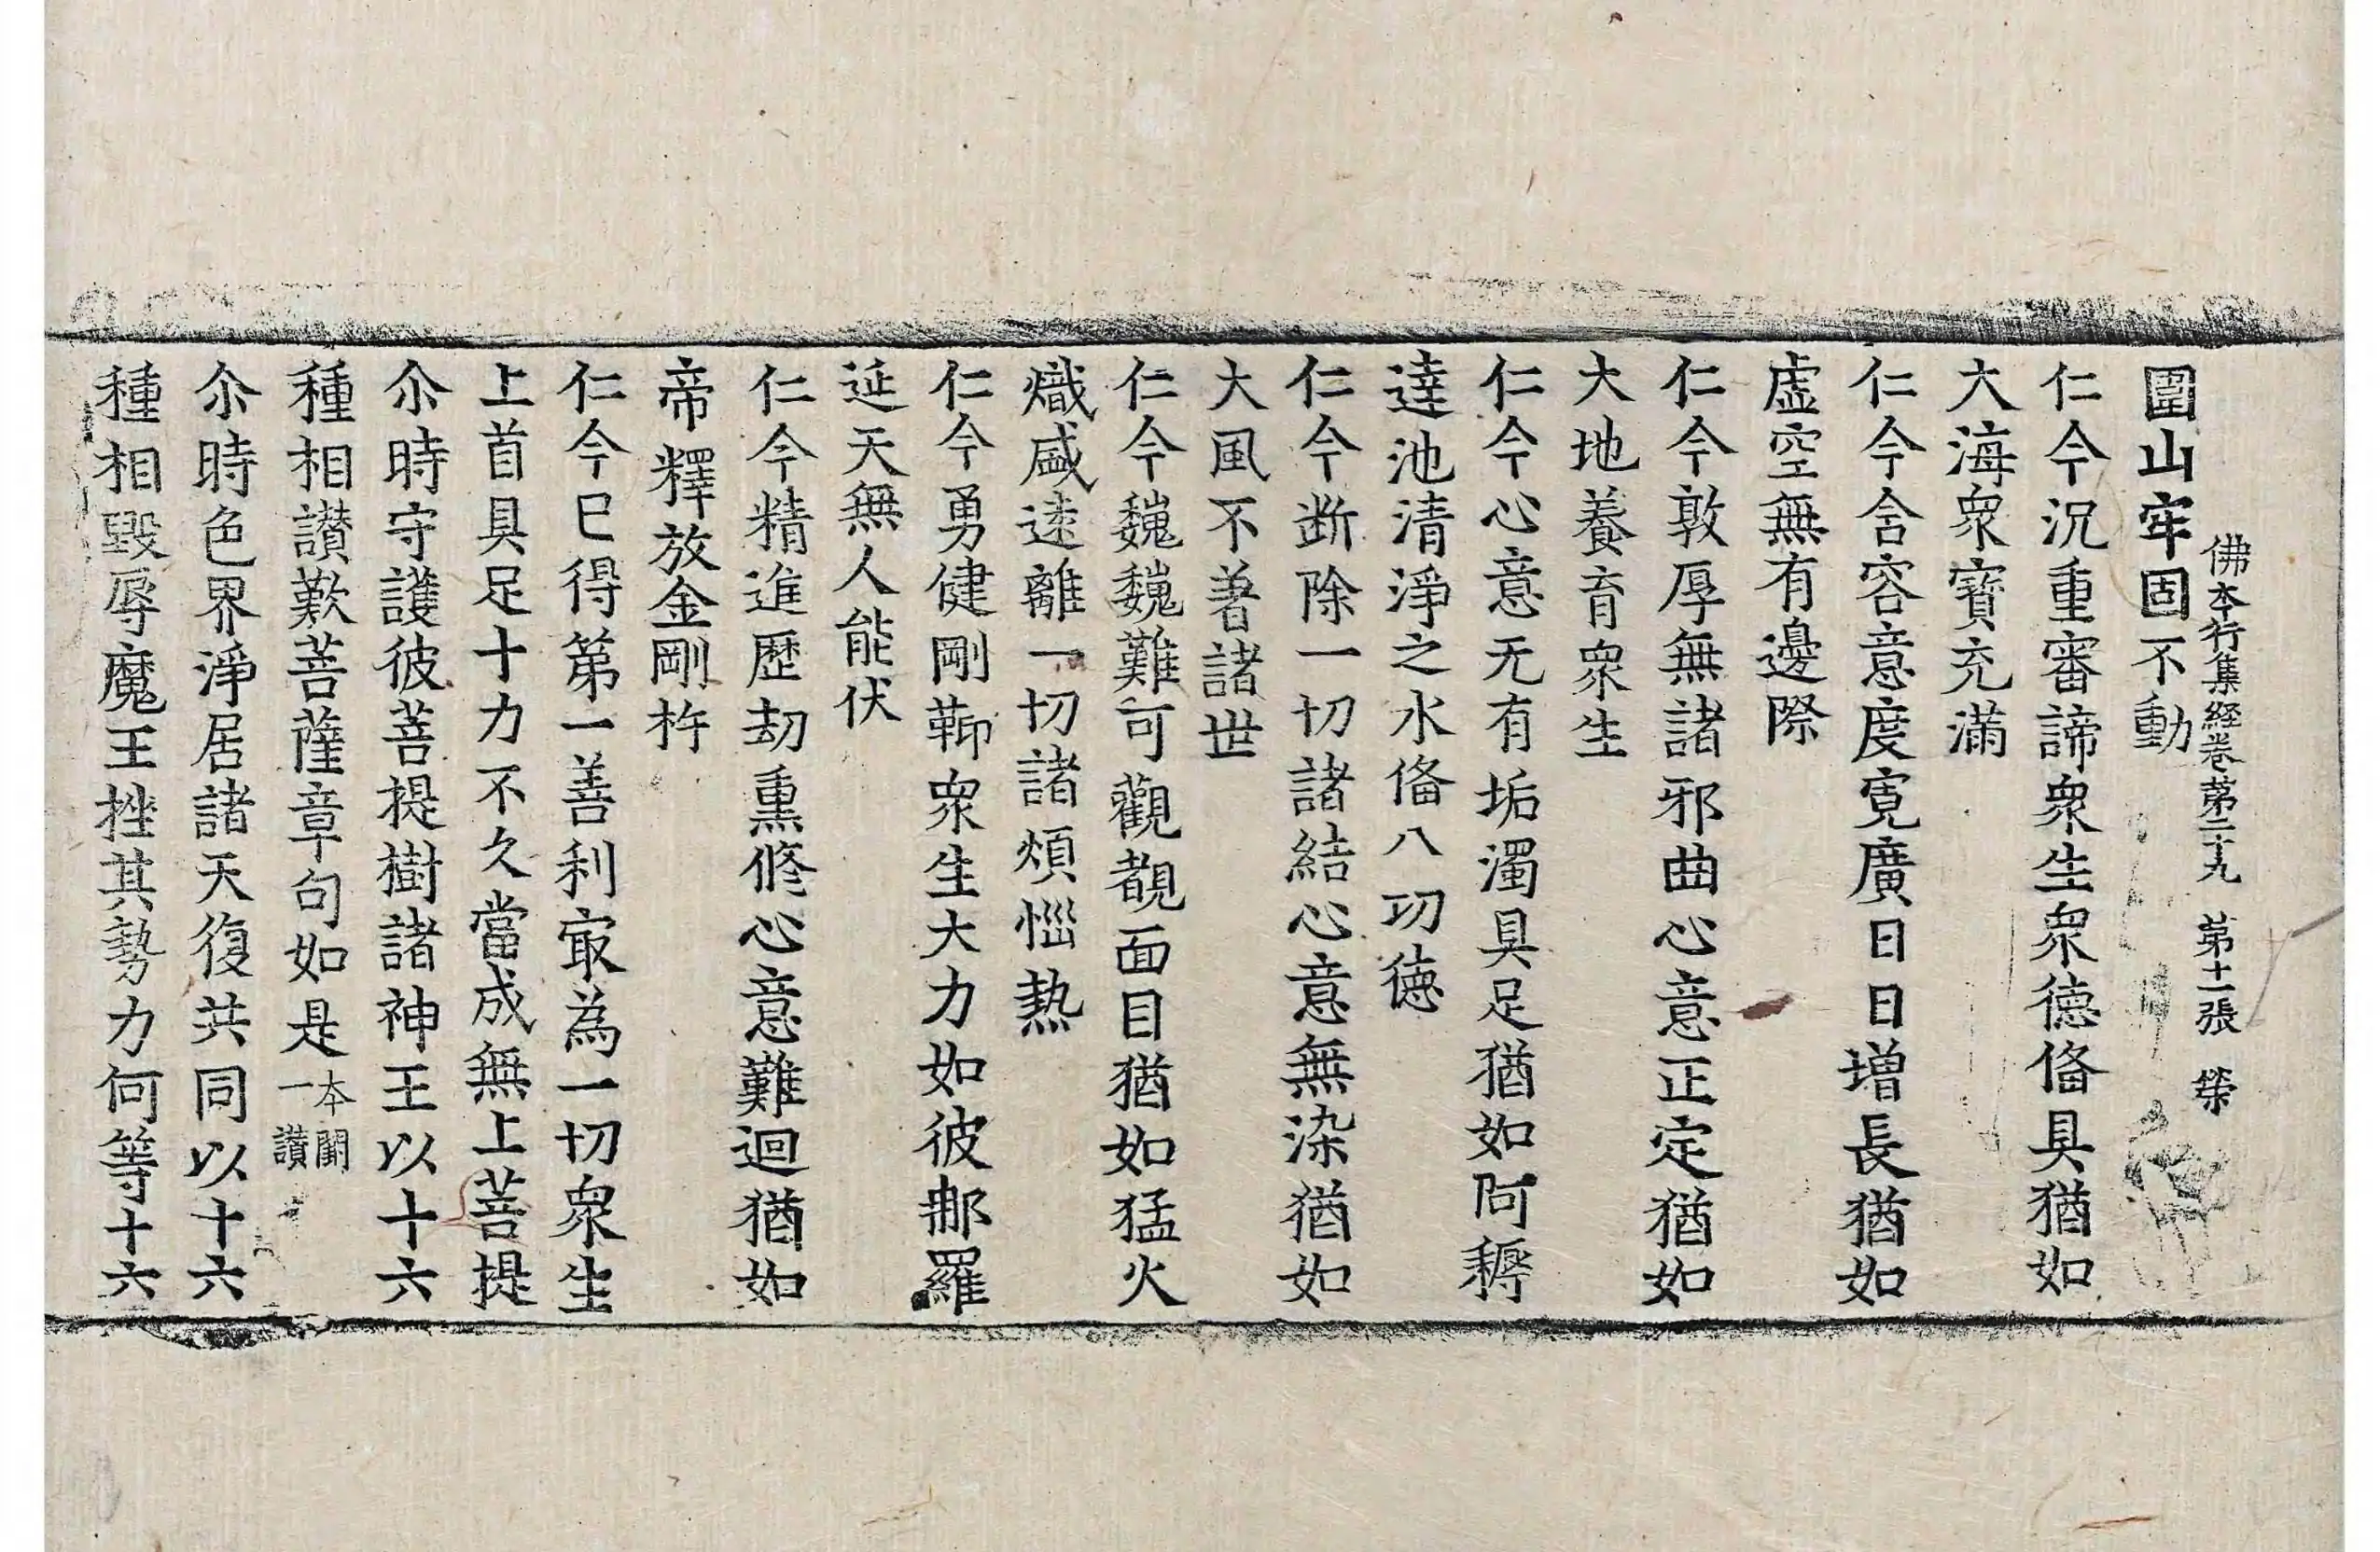 佛本行集経卷第二十九　第十一張　榮
圍山牢固不動
仁今沉重審諦衆生衆德俻具猶如
大海衆寶充滿
仁今含容意度寬廣日日增長猶如
虛空無有邊際
仁今敦厚無諸邪曲心意正定猶如
大地養育衆生
仁今心意无有垢濁具足猶如阿耨
達池清淨之水俻八功德
仁今断除一切諸結心意無染猶如
大風不著諸世
仁今巍巍難可觀覩面目猶如猛火
熾盛遠離一切諸煩惱熱
仁今勇健剛鞕衆生大力如彼那羅
延天無人能伏
仁今精進歷劫熏修心意難迴猶如
帝釋放金剛杵
仁今已得第一善利㝡為一切衆生
上首具足十力不久當成無上菩提
尒時守護彼菩提樹諸神王以十六
種相讃歎菩薩章句如是本闕一讃
尒時色界淨居諸天復共同以十六
種相毀辱魔王挫其勢力何等十六